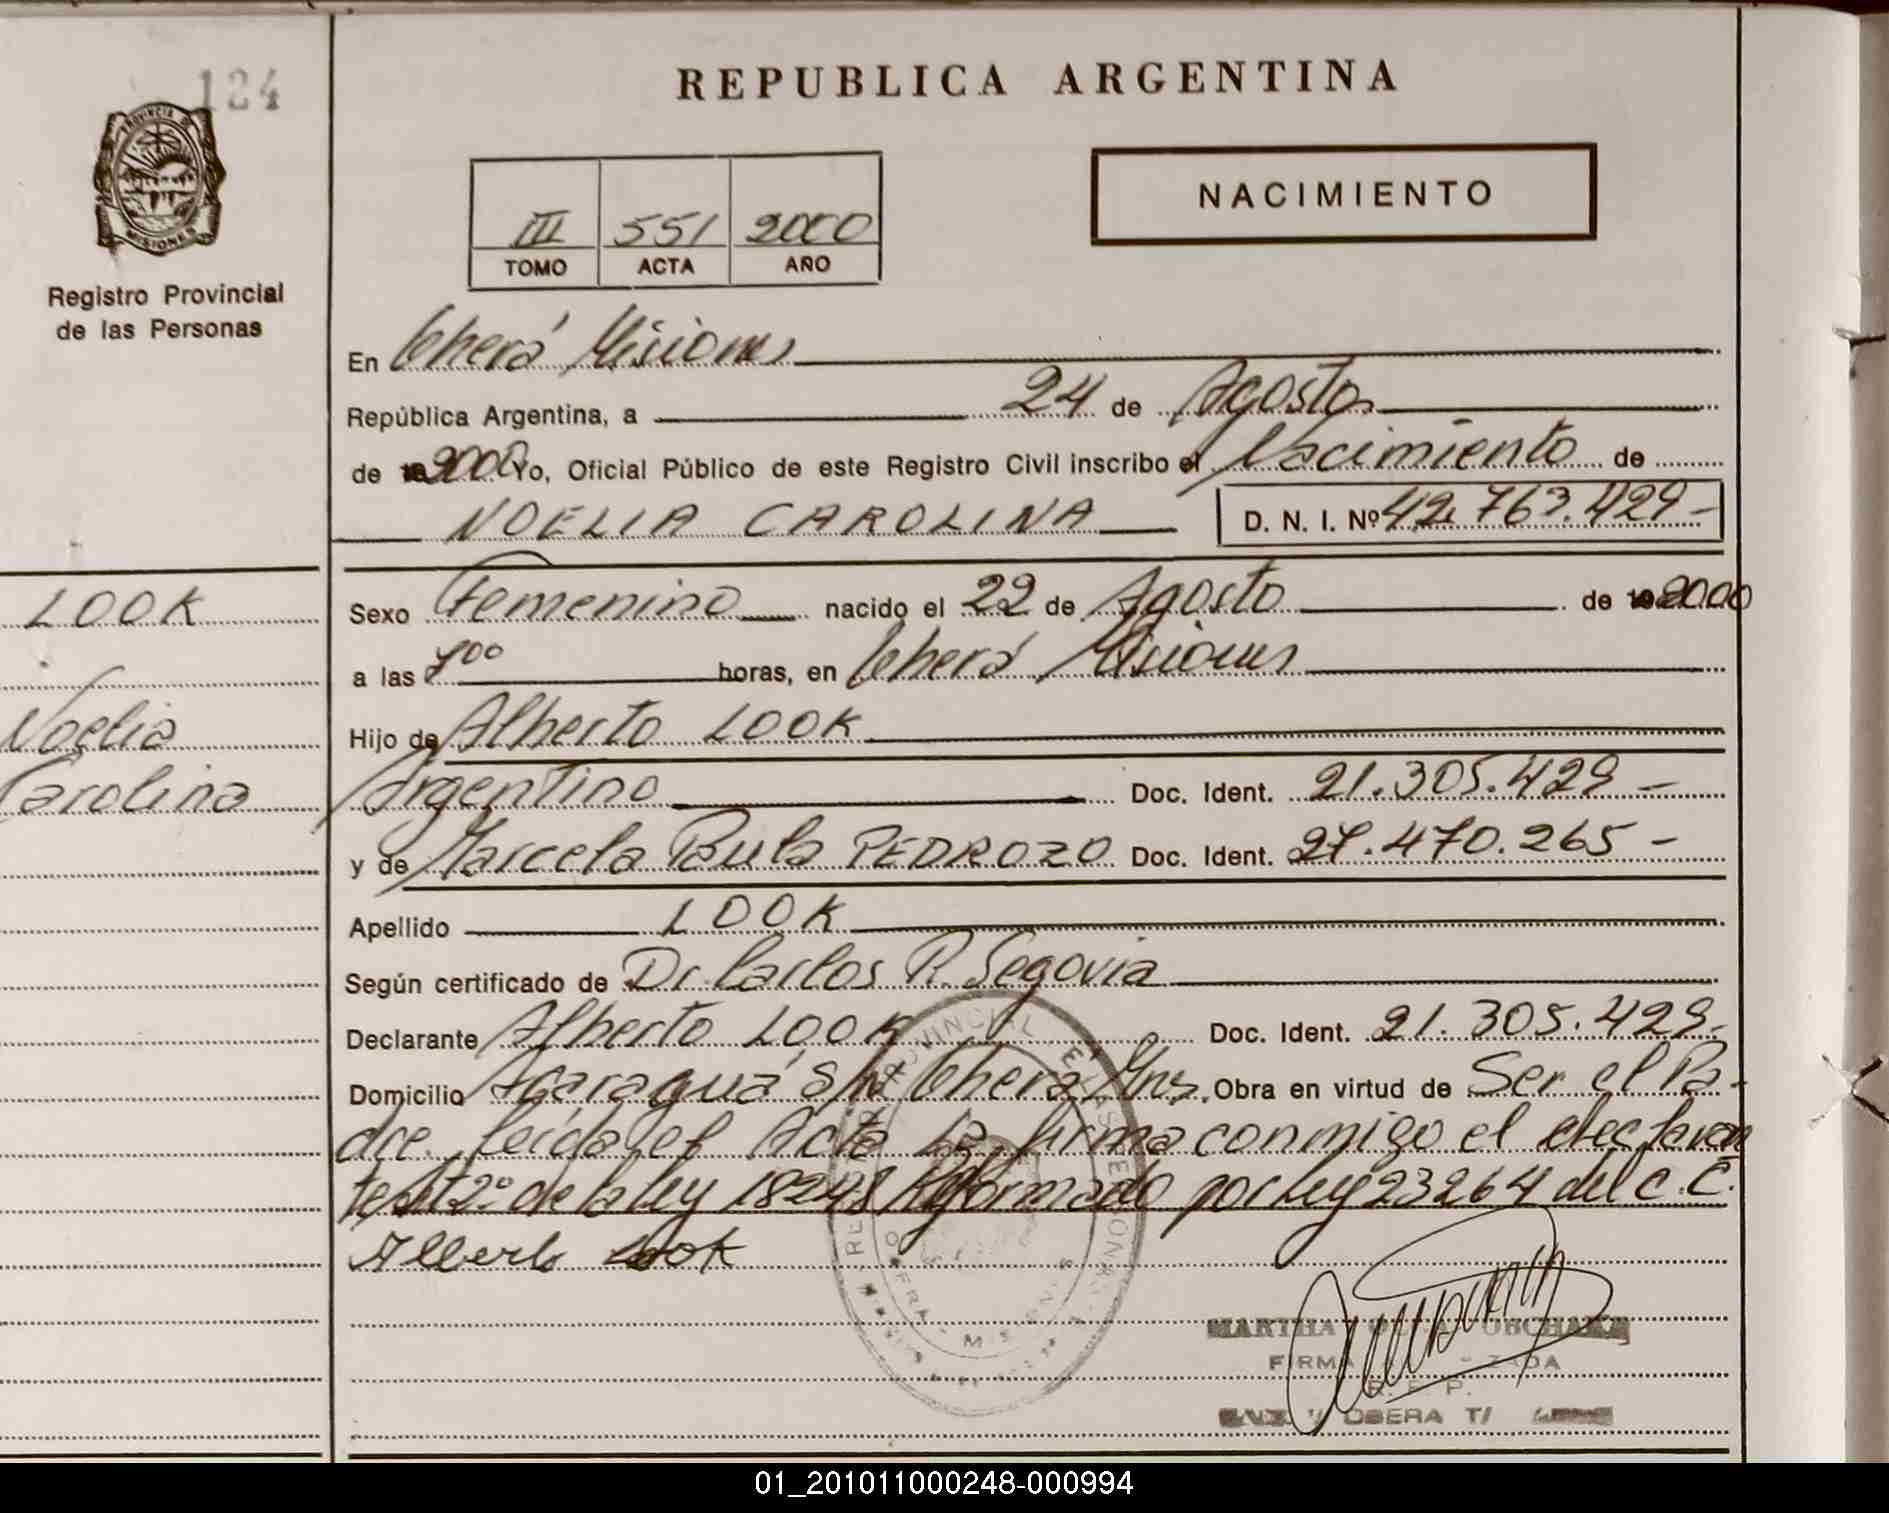 124
PROVINCIA DE
MISIONES
Registro Provincial
de las Personas
LOOK
Noelia
Carolina
REPUBLICA ARGENTINA
NACIMIENTO
III 551 2000
TOMO ACTA AÑO
En Oberá Misiones
República Argentina, a 24 de Agosto
de 2000 Yo, Oficial Público de este Registro Civil inscribo el Nacimiento de
NOELIA CAROLINA D. N. I. Nº 42.763.429-
Sexo Femenino nacido el 22 de Agosto de 2000
a las 7⁰⁰ horas, en Oberá Misiones
Hijo de Alberto LOOK
Argentino Doc. Ident. 21.305.429-
y de Marcela Paula PEDROZO Doc. Ident. 27.470.265-
Apellido LOOK
Según certificado de Dr. Carlos R. Segovia
Declarante Alberto LOOK Doc. Ident. 21.305.429-
Domicilio Acaraguá S/Nº Oberá Mns. Obra en virtud de Ser el Pa-
dre. leída el Acta la firma conmigo el declaran
te Art 2º de la ley 18248 Reformado por Ley 23264 del C.C.
Alberto LOOK
MARTHA
FIRMA
OBERA
01_201011000248-000994